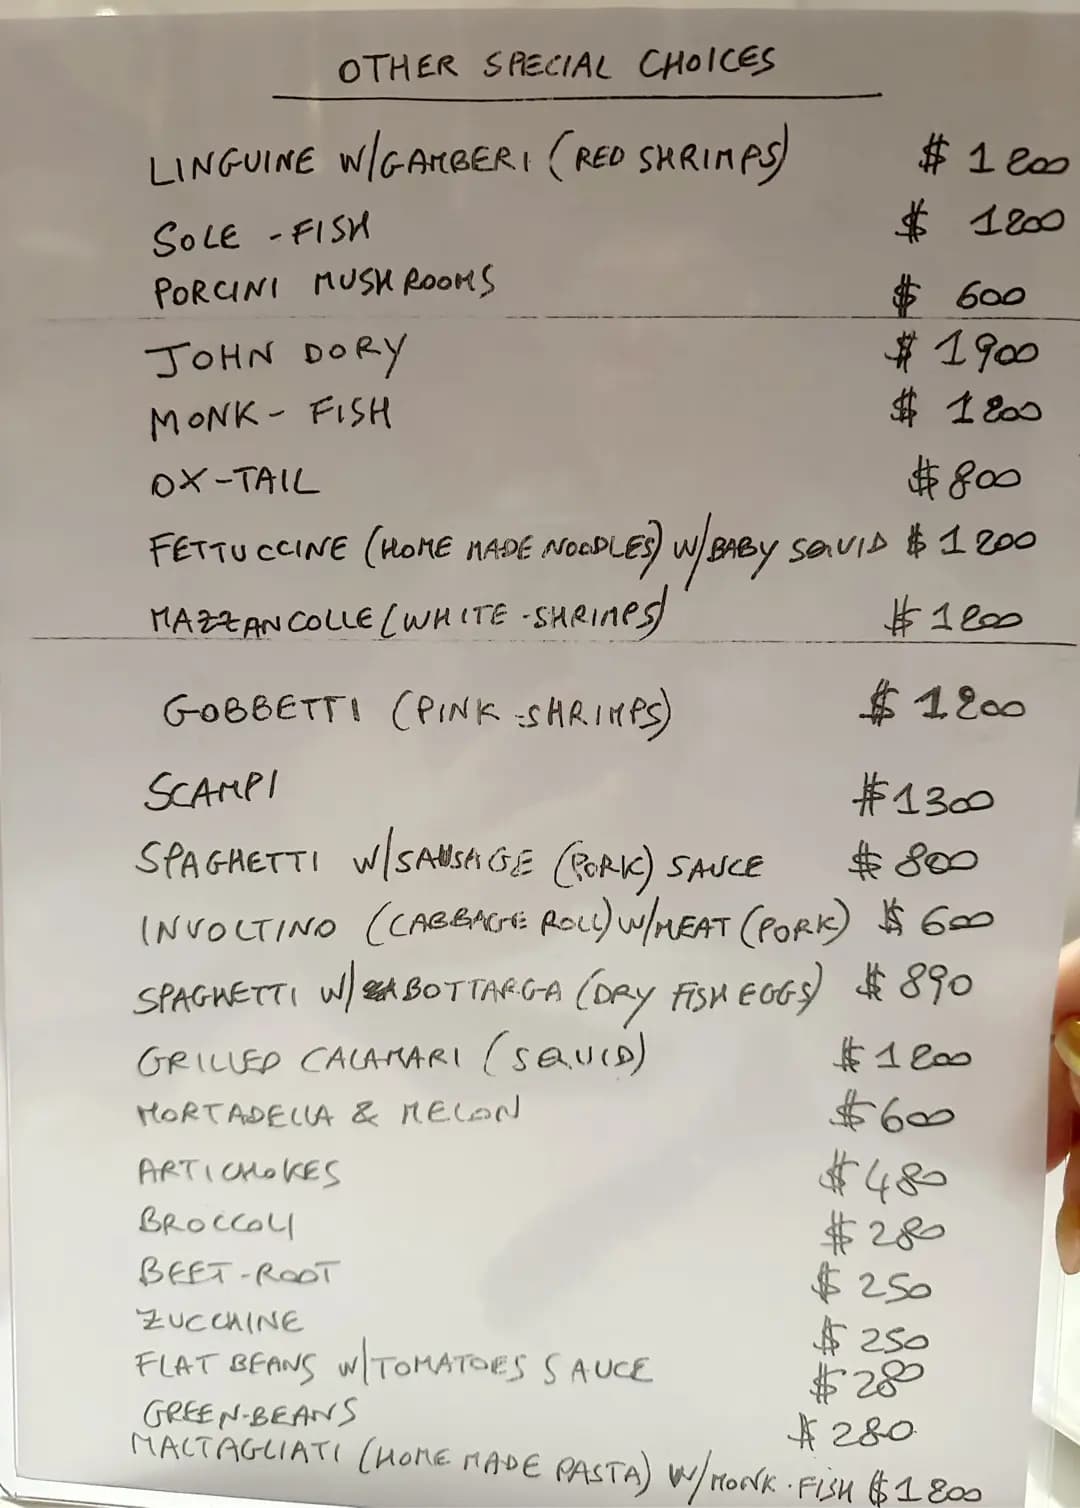 OTHER SPECIAL CHOICES
LINGUINE W/GAMBERI (RED SHRIMPS) $ 1200
SOLE - FISH $ 1200
PORCINI MUSHROOMS $ 600
JOHN DORY $ 1900
MONK - FISH $ 1200
OX-TAIL $ 800
FETTUCCINE (HOME MADE NOODLES) W/BABY SQUID $ 1200
MAZZANCOLLE (WHITE-SHRIMPS) $ 1200
GOBBETTI (PINK-SHRIMPS) $ 1200
SCAMPI $ 1300
SPAGHETTI W/SAUSAGE (PORK) SAUCE $ 800
INVOLTINO (CABBAGE ROLL) W/MEAT (PORK) $ 600
SPAGHETTI W/ BOTTARGA (DRY FISH EGGS) $ 890
GRILLED CALAMARI (SQUID) $ 1200
MORTADELLA & MELON $ 600
ARTICHOKES $ 480
BROCCOLI $ 280
BEET-ROOT $ 250
ZUCCHINE $ 250
FLAT BEANS W/TOMATOES SAUCE $ 280
GREEN-BEANS $ 280
MALTAGLIATI (HOME MADE PASTA) W/MONK-FISH $ 1200